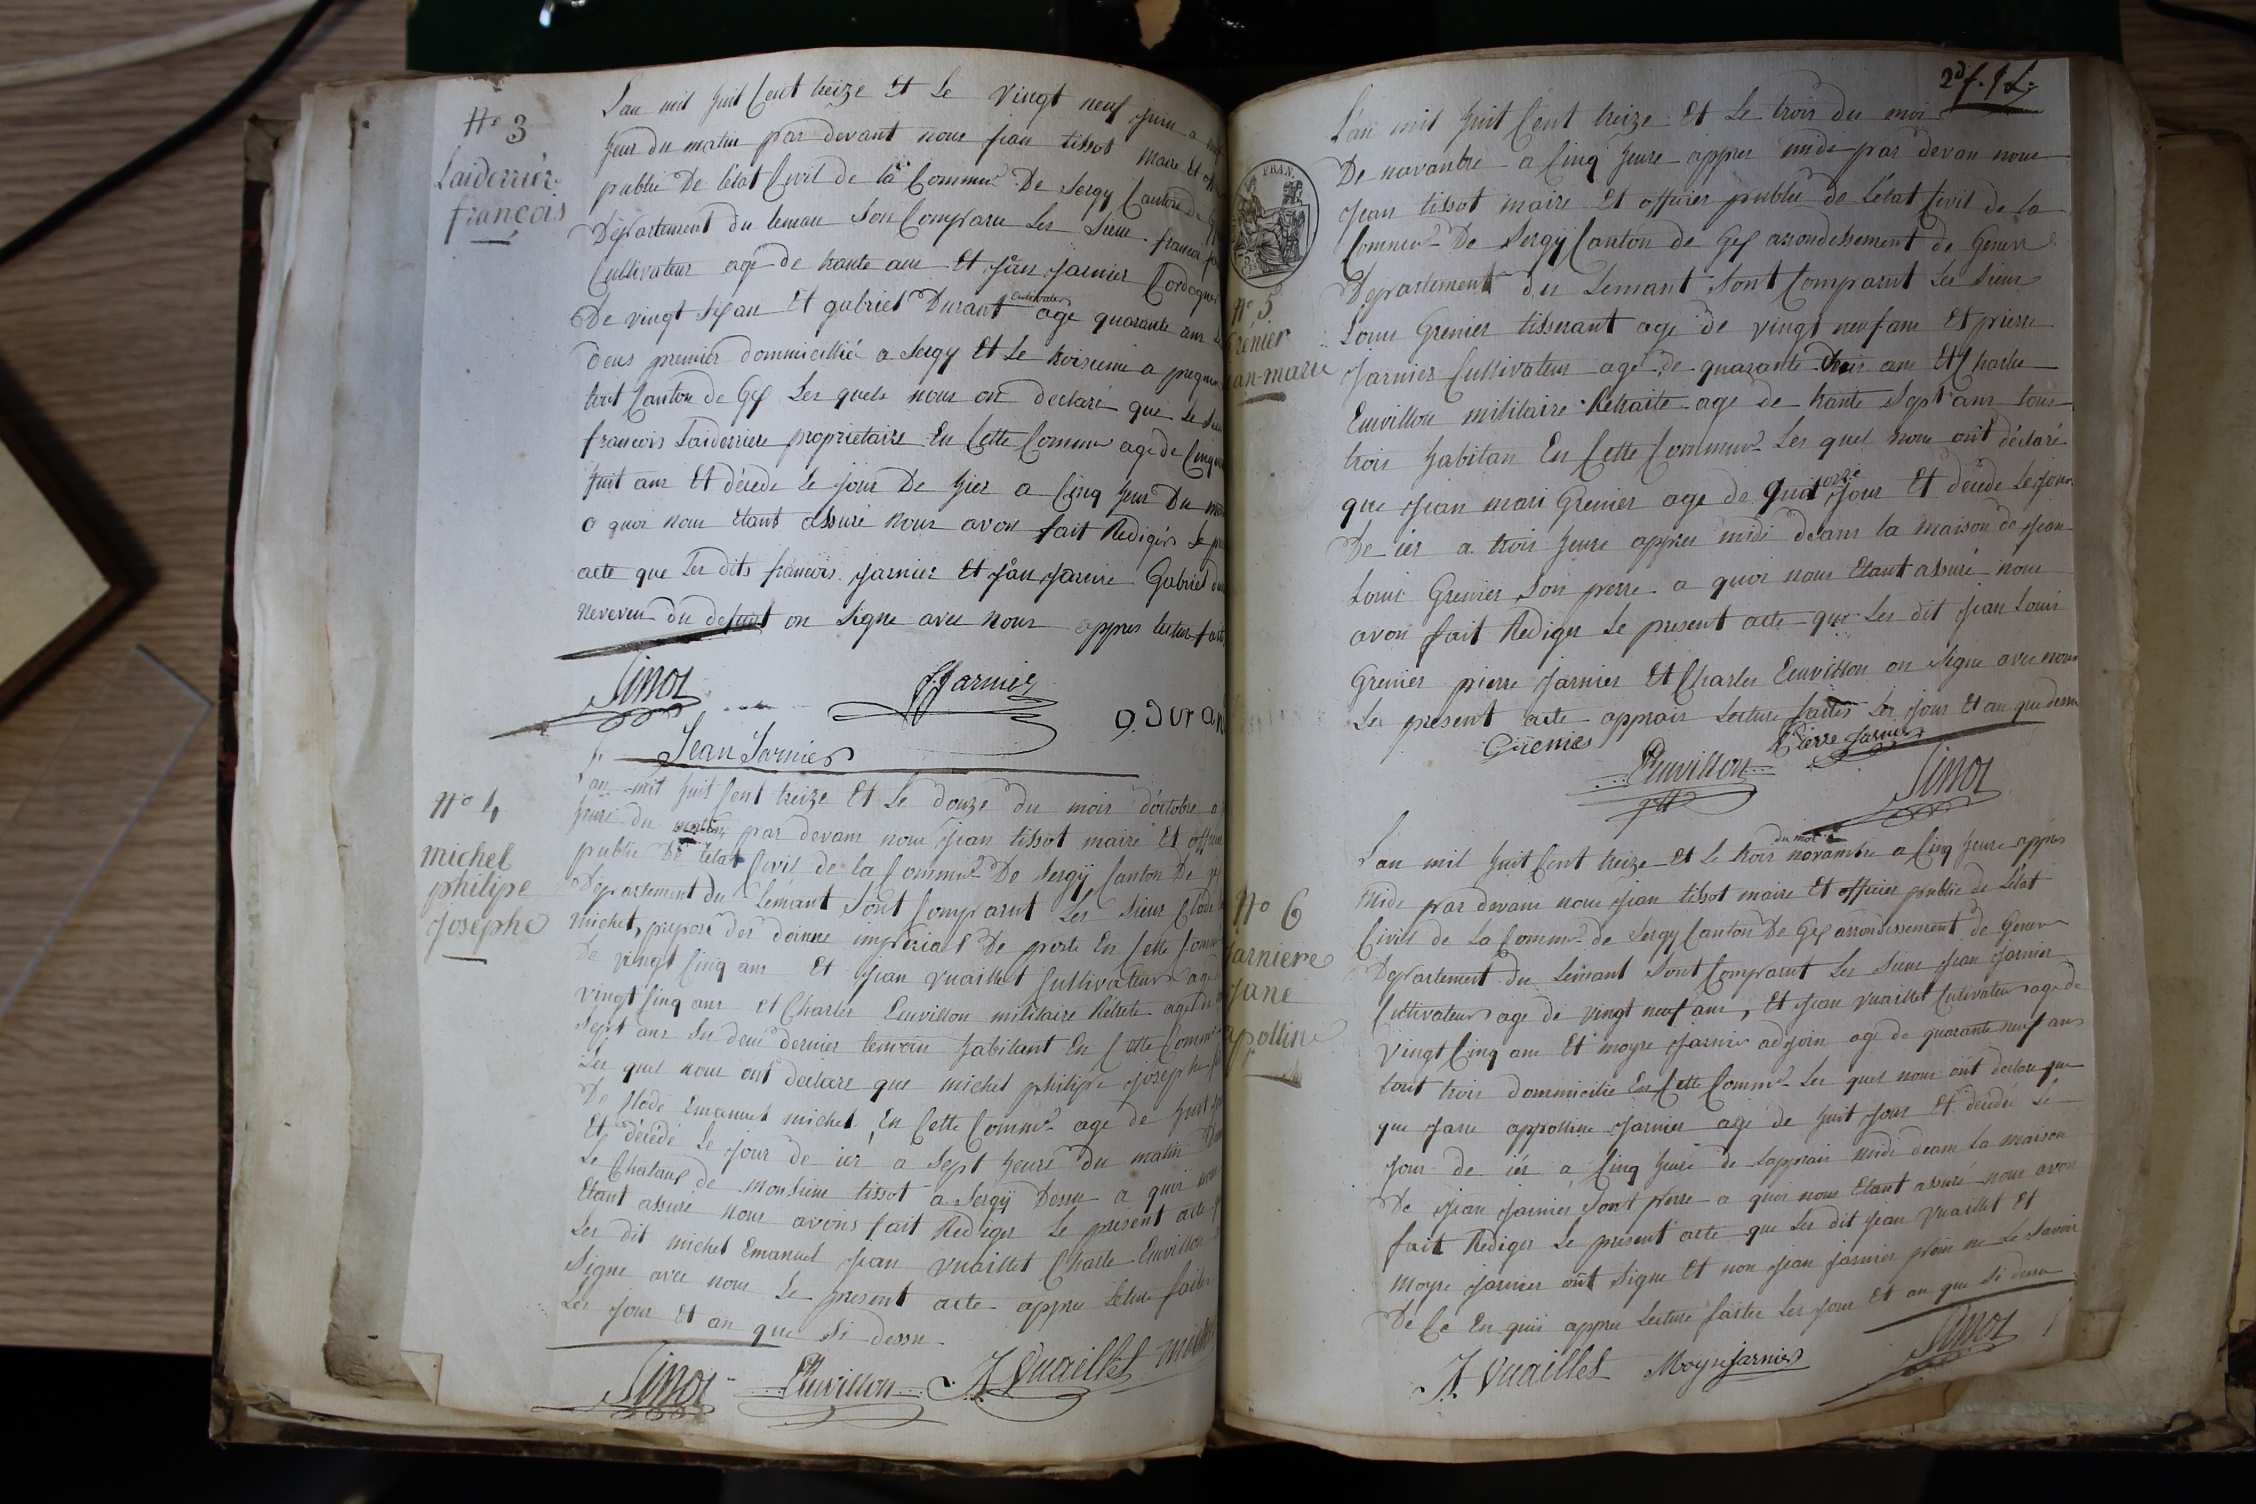 N° 3
Laiderrier
françois
L'an mil huit Cent treize Et Le vingt neuf juin a
heur du matin par devant nous jean tissot maire Et
public De l'état Civil de la Commune De Sergy Canton de
Département du leman Son Comparu Les Sieur francois
Cultivateur age de trante ans Et jean jarnier Cordognier
De vingt Six an Et gabriel Durant cultivateur age quarante ans
deus premier dommicillié a Sergy Et Le troisieme a
tout Canton de Gex Les quels nous on declaré que Le Sieur
francois Laiderriere proprietaire En Cette Commune age de
huit ans Et décédé Le jour De hier a Cinq heur Du
a quoi nous Etant assuré nous avon fait Redigér Le
acte que Les dits francois jarnier Et jean jarnire Gabriel
neveveu du defunt on Signe avec nous appres lectur
Tissot
F Jarnier
g. Duran
Jean Jarnier
N° 4
michel
philipe
josephe
L'an mil huit Cent treize Et Le douze du mois d'octobre a
heure du matin par devant nous jean tissot maire Et
public De l'état Civil de la Commune De Sergÿ Canton De
Département du Lémant Sont Comparut Les Sieur Clode
michel, preposé des doinne imperial De poste En Cette
De vingt Cinq ans Et jean vuaillet Cultivateur age
vingt Cinq ans et Charles Euvillon militaire Rétrete age de
Sept ans Les deus dernier temoin habitant En Cette Comm
Les quel nous ont declaré que michel philipe josephe
De Clode Emanuel michel En Cette Comm age de huit
Et décédé Le jour de iér a Sept heure du matin
Le Chertaux de monsieur tissot a Sergÿ Dessu a quoi
Etant assuré nous avons fait Rediger Le présent acte
Les dit michel Emanuel jean vuaillet Charle Euvillon
Signe avec nous Le present acte appres lecture
Les jour Et an que Si dessu
Tissot Euvillon J Vuaillet
2d f. 1 L.
L'an mil huit Cent treize Et Le trois du moi
De novanbre a Cinq heure appres midi par devan nous
jean tissot maire Et officier public de l'état Civil de la
Commune De Sergÿ Canton de Gex arrondessement de Genev
Département du Lemant Sont Comparut Les Sieur
FRAN.
N° 5
Grénier
jean-marie
Louis Grenier tisserant age de vingt neuf ans Et pierre
jarnier Cultivateur age de quarante trois ans Et Charles
Euvillon militaire Retraite age de trante Sept ans tous
trois habitan En Cette Commune Les quel nous ont déclaré
que jean mari Grenier age de quatorze jour Et décédé Le jour
De iér a trois heure appres midi deans la maison de jean
Louis Grenier Son perre a quoi nous Etant assuré nous
avon fait Rediger Le present acte que Les dit jean Louis
Grenier pierre jarnier Et Charles Euvillon on Signe avec nous
Le present acte apprais Lecture faites Les jour Et an que dessu
Grenier Pierre Jarnier
Euvillon Tissot
N° 6
jarniere
jane
apolline
L'an mil huit Cent treize Et Le trois du moi novambre a Cinq heure appres
midi par devant nous jean tissot maire Et officier public de L'état
Civil de La Commune de Sergy Canton De Gex arrondissement de Genev
Département du Lémant Sont Comparut Les Sieur jean jarnier
Cultivateur age de vingt neuf ans, Et jean vuaillet Cultivateur age de
vingt Cinq ans Et moyse jarnier adjoin age de quarante neuf ans
tout trois dommicilie En Cette Comm Les quel nous ont declare que
que jane appolline jarnier age de huit jour Et décédé Le
jour de iér a Cinq heure de l'apprais midi deans La maison
De jean jarnier Sont perre a quoi nous Etant assuré nous avon
fait Rediger Le présent acte que Les dit jean Vuaillet Et
moyse jarnier ont Signe Et non jean jarnier ne Le Savoir
De Ce En quis appres Lecture faites Les jour Et an que Si dessu
J. Vuaillet Moyse Jarnier Tissot